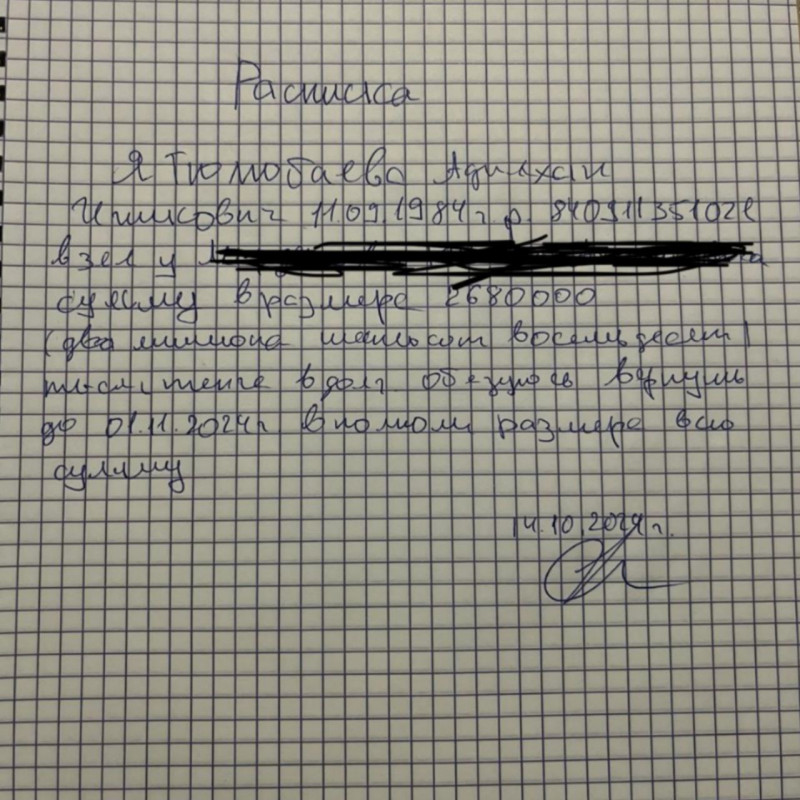 Расписка
Я Тюмобаево Адилхан
11.09.1984 г.р. 840911351021
взел у
сумму в размере 2680000
(два милиона шатьсот восемьдесят)
тысяч тенге в долг. обезуюсь вернуть
до 01.11.2024г в полном размере всю
сумму
14.10.2024 г.